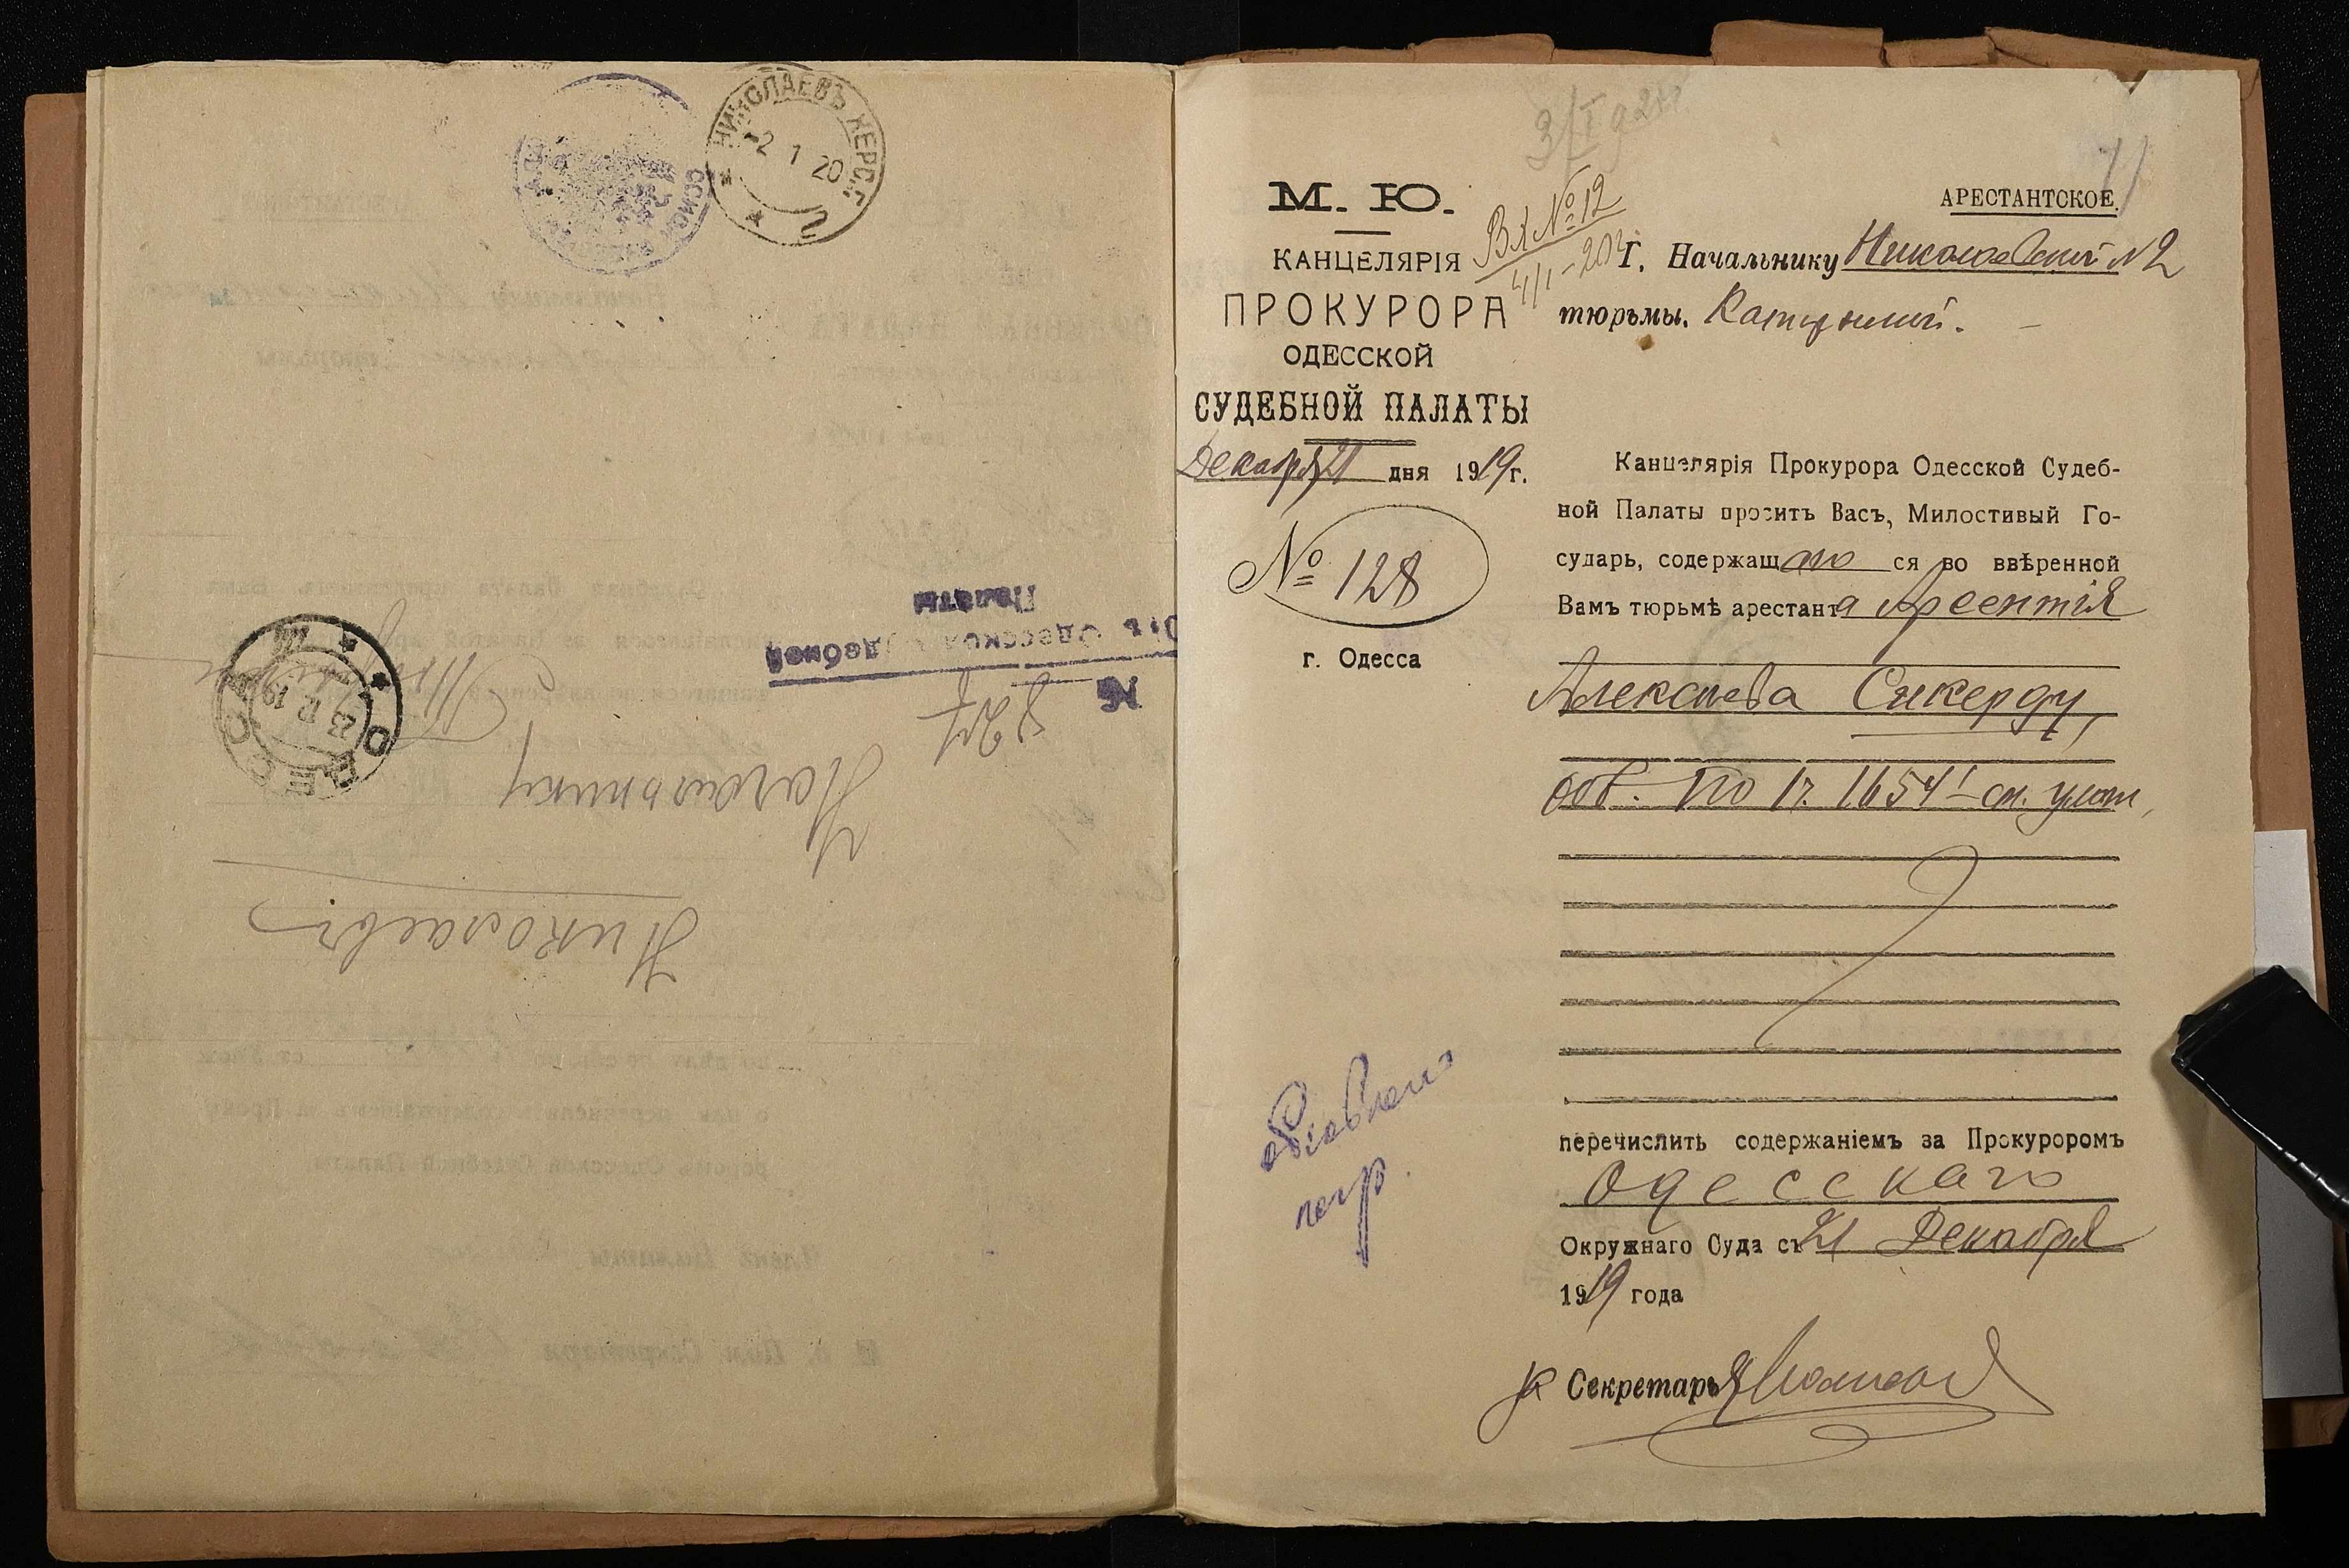 НИКОЛАЕВЪ ХЕРС.Г.
-2 1 20
2
Отъ Одесской Судебной
Палаты
№ 827
Начальнику
Николаевъ
ОДЕССА
23 12 19
3/I 920
11
М. Ю.
КАНЦЕЛЯРІЯ
ПРОКУРОРА
ОДЕССКОЙ
СУДЕБНОЙ ПАЛАТЫ
Декабря 21 дня 1919 г.
№ 128
г. Одесса
Вх № 12
4/I - 20
АРЕСТАНТСКОЕ.
Г. Начальнику Николаевской № 2
тюрьмы. Каторжной.
Канцелярія Прокурора Одесской Судеб-
ной Палаты проситъ Васъ, Милостивый Го-
сударь, содержащаго ся во ввѣренной
Вамъ тюрьмѣ арестанта Арсентія
Алексѣева Сикерду,
обв. по 1 ч. 1654¹ ст. улож.,
перечислить содержаніемъ за Прокуроромъ
Одесскаго
Окружнаго Суда съ 21 Декабря
1919 года
Секретарь
объявлено